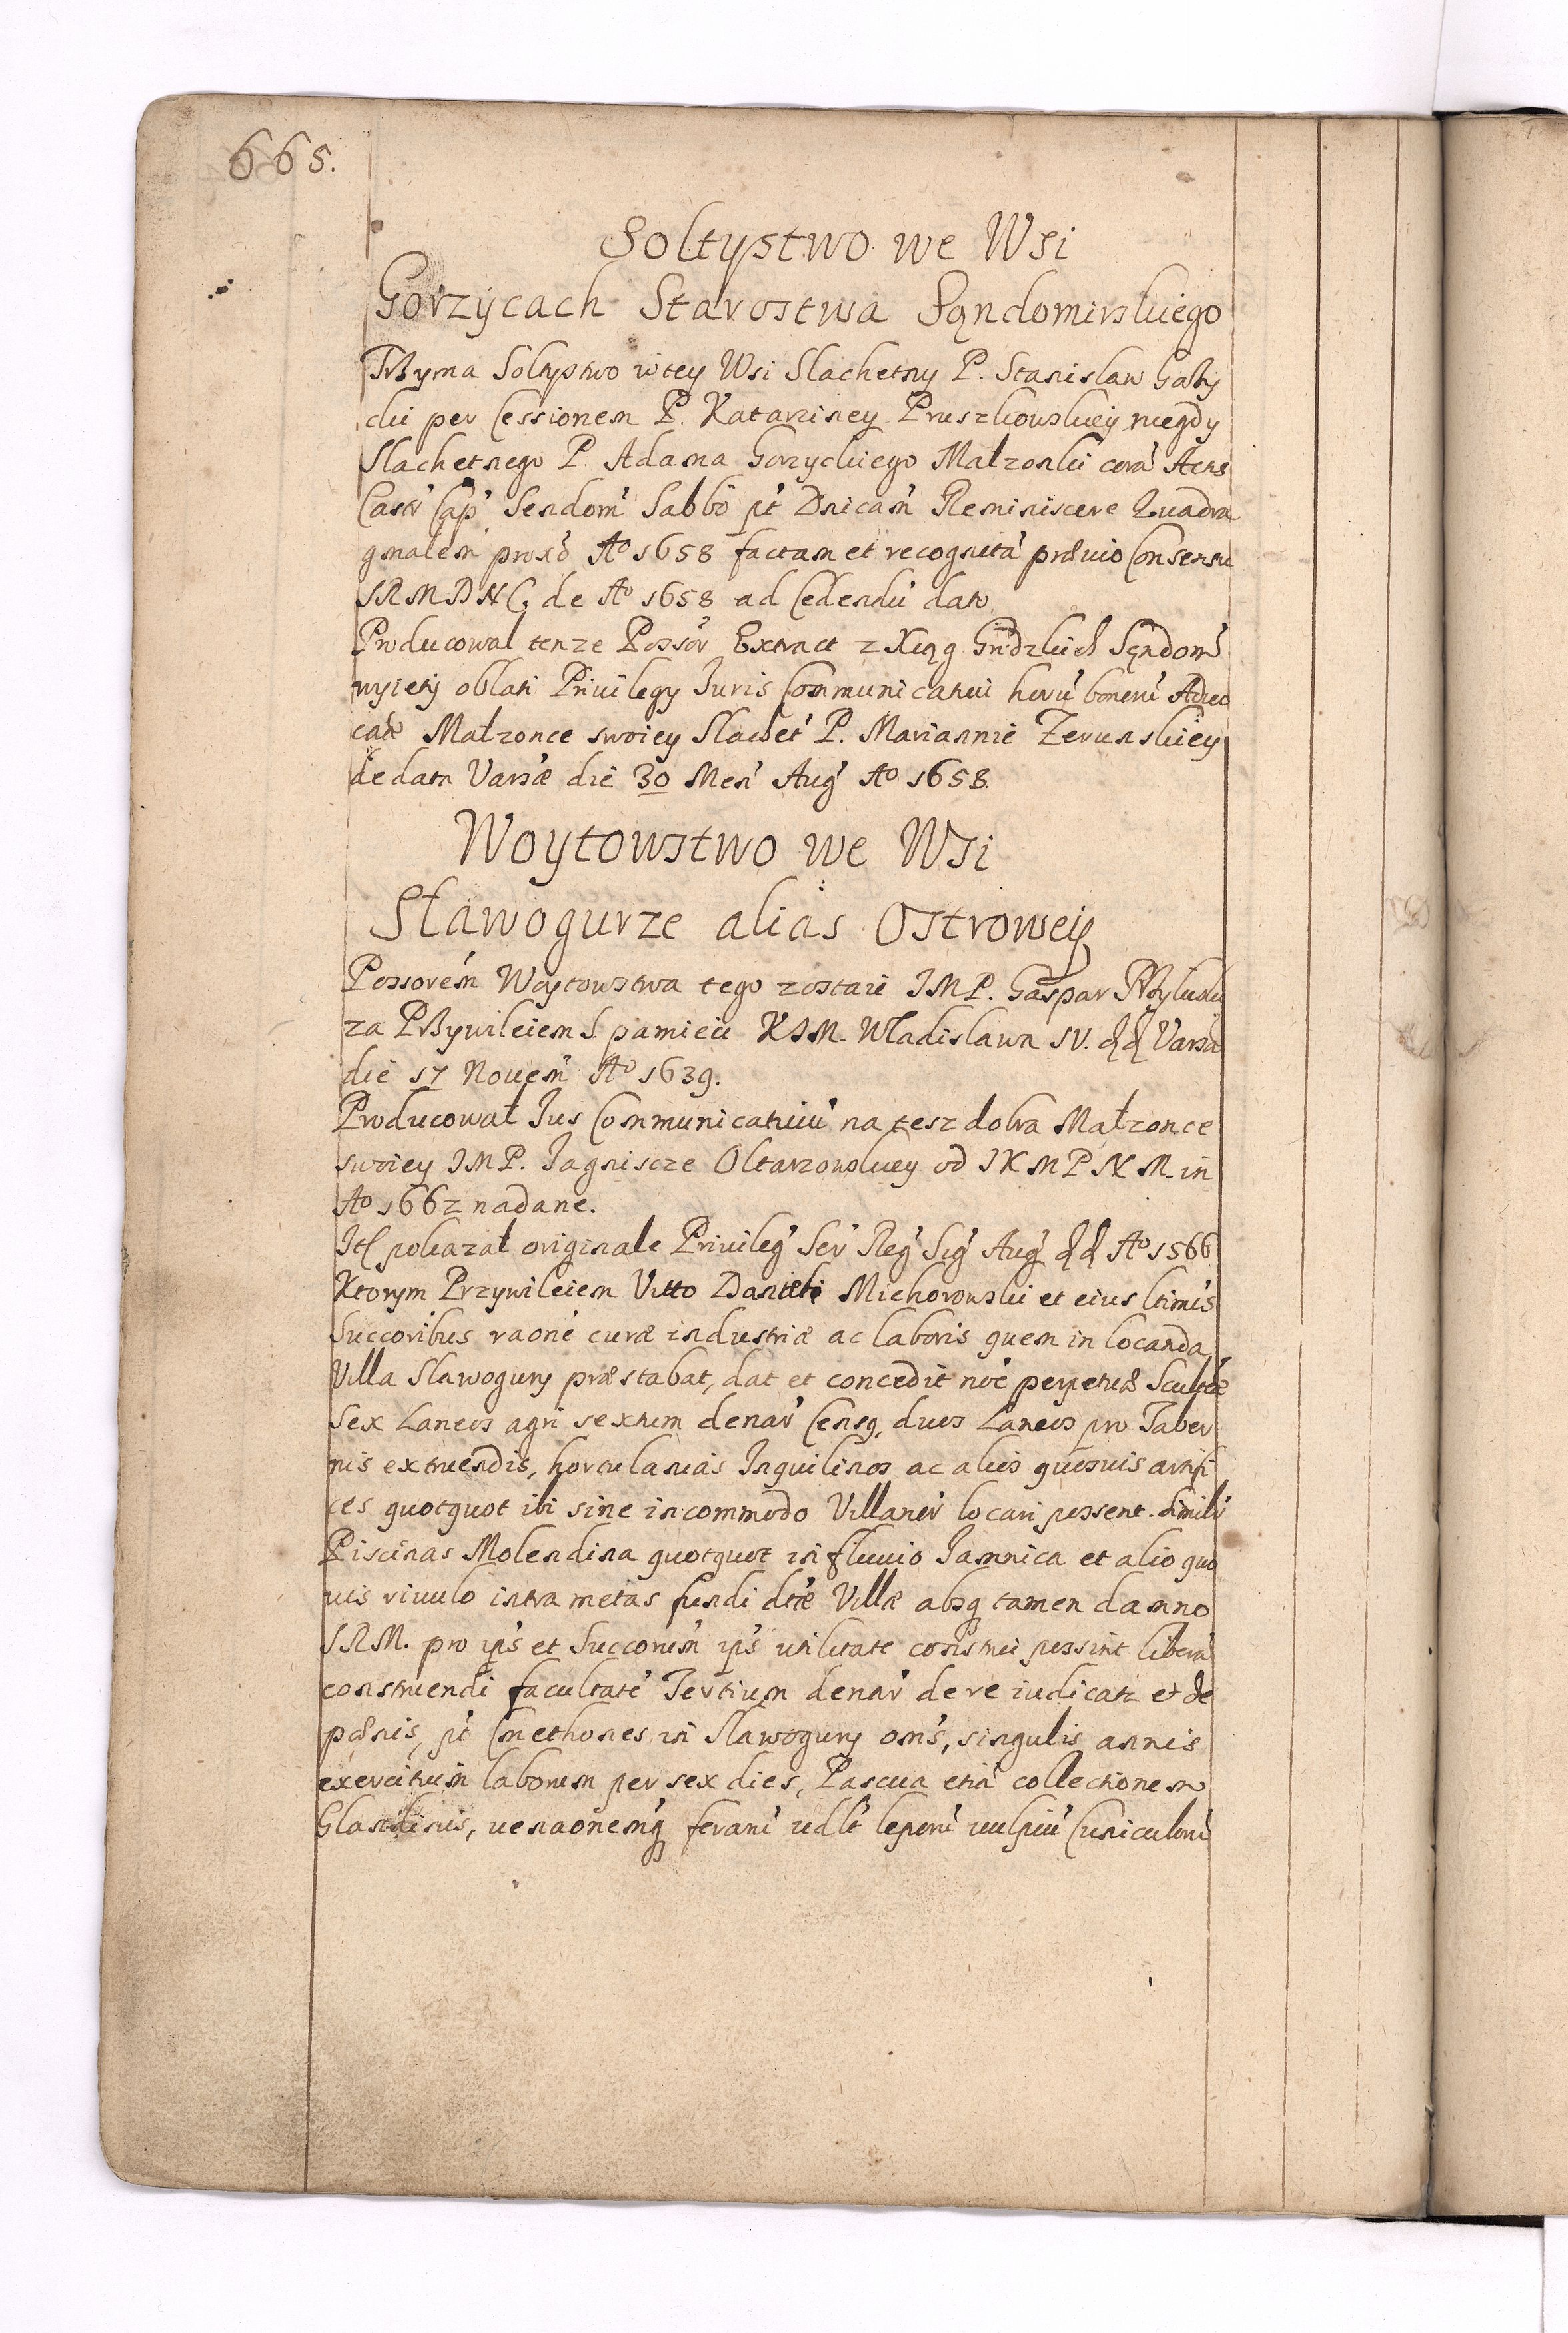 665.
Soltystwo we Wsi
Gorzycach Starostwa Sądomirskiego
Trzyma Soltystwo w tey Wsi Slachetny P. Stanislaw
cki per Cessionem P. Katarziney Pruszkowskiey niegdy
Slachetnego P. Adama Gorzyckiego Malzonki corā Actis
Castr Cap Sendom Sabbo pt Dnicam Reminiscere Quadra
gmalem proxo Ao 1658 factam et recognitā prævio Consensu
SRMDNC, de Ao 1658 ad Cedendū dato
Producowal tenze Possor Extract z Xiąg Grodzkich Sędom
wyięty oblati Privilegy Iuris Communicativi horū bonorū Advo
catæ Malzonce swoiey Slachet P. Mariannie Zerunskiey
de data Varsæ die 30 Men Aug Ao 1658.
Woytowstwo we Wsi
Sławogurze alias Ostrowey
Possorem Woytowstwa tego zostaie IMP. Gaspar Przyłuski
za Przywileiem S. pamieci KIM. Władislawa IV. dd Varsa
die 17 Novem Ao 1639.
Producował Ius Communicativū na tesz dobra Małzonce
swoiey IMP. Iagniscze Oltarzowskiey od IKMPNM. in
Ao 1662 nadane.
It pokazał originale Privileg Ser Reg Sig Aug dd Ao 1566
Ktorym Przywileiem Vitto Danieli Michorowski et eius ltimis
Succoribus raone curæ industriæ ac laboris quem in locanda
Villa Slawogury præstabat, dat et concedit noe perpetuæ Scultetiæ
Sex Laneos agri sextum denar Censq, duos Laneos pro Taber
nis extruendis, hortulanias Inquilinos ac alios quosvis artifi
ces quotquot ibi sine incommodo Villanor locari possent. Simili
Piscinas Molendina quotquot in fluvio Iamnica et alio quo
vis rivulo intra metas fundi dtæ Villæ absq tamen damno
SRM. pro ips et Succorum ips utilitate construi possint liberā
construendi facultate Tertium denar de re iudicata et de
pænis, pt Cmethones in Slawogury oms, singulis annis
exercitium laborum per sex dies, Pascua etiā collectionem
Glandinis, venaonemq ferarū vdlt leporū vulpiū Cuniculorū